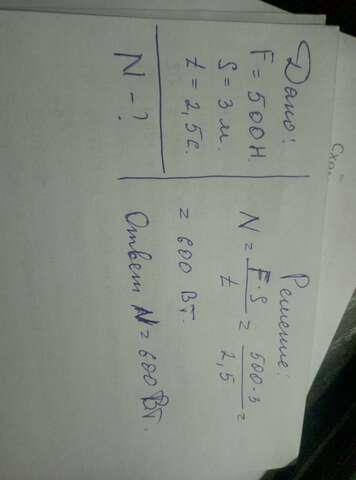 Дано:
F = 500 Н.
S = 3 м.
t = 2,5 с.
N - ?
Решение:
N = F·S / t = 500·3 / 2,5 =
= 600 Вт.
Ответ N = 600 Вт.